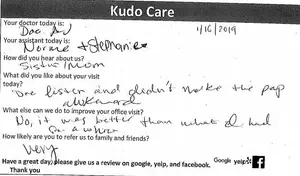 Kudo Care
Your doctor today is: 1/16/2019
Doc
Your assistant today is:
Norme + Stephanie
How did you hear about us?
Sister/Mom
What did you like about your visit
today?
Doc listen and didn't make the pap
awkward
What else can we do to improve your office visit?
No, it was better than what I had
How likely are you to refer us to family and friends?
Very
Have a great day, please give us a review on google, yelp, and facebook. Google yelp f
Thank you